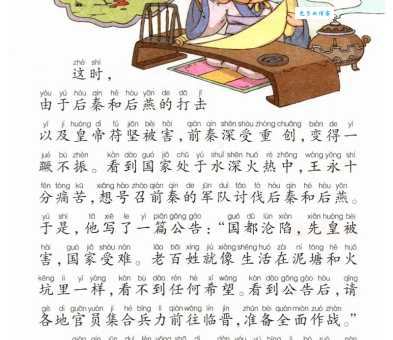 zhè shí
这时，
yóu yú hòu qín hé hòu yān de dǎ jī
由于后秦和后燕的打击
yǐ jí huáng dì fú jiān bèi hài qián qín shēn shòu zhòng chuāng biàn de yì
以及皇帝苻坚被害，前秦深受重创，变得一
jué bú zhèn kàn dào guó jiā chǔ yú shuǐ shēn huǒ rè zhōng wáng yǒng shí
蹶不振。看到国家处于水深火热中，王永十
fēn tòng kǔ xiǎng hào zhào qián qín de jūn duì tǎo fá hòu qín hé hòu yān
分痛苦，想号召前秦的军队讨伐后秦和后燕。
yú shì tā xiě le yì piān gōng gào guó dū lún xiàn xiān huáng bèi
于是，他写了一篇公告：“国都沦陷，先皇被
hài guó jiā shòu nàn lǎo bǎi xìng jiù xiàng shēng huó zài ní táng hé huǒ
害，国家受难。老百姓就像生活在泥塘和火
kēng lǐ yí yàng kàn bú dào rèn hé xī wàng kàn dào gōng gào hòu qǐng
坑里一样，看不到任何希望。看到公告后，请
gè dì guān yuán jí hé bīng lì qián wǎng lín jìn zhǔn bèi quán miàn zuò zhàn
各地官员集合兵力前往临晋，准备全面作战。”